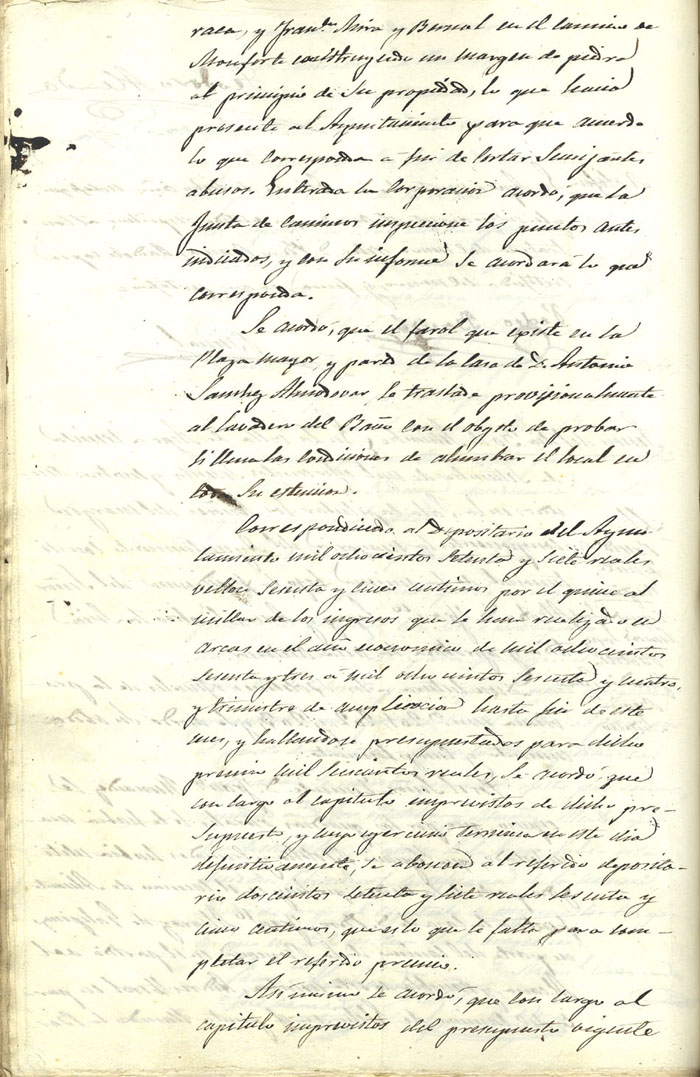 raca, y Fran.co Mira y Bernal en el camino de
Monforte construyendo un margen de piedra
al principio de su propiedad, lo que hacia
presente al Ayuntamiento para que acuerde
lo que corresponda a fin de cortar semejantes
abusos. Enterada la Corporacion acordó, que la
Junta de caminos inspecione los puntos antes
indicados, y con su informe se acordará lo que
corresponda.
Se acordó, que el farol que existe en la
Plaza mayor, y pared de la casa de D. Antonio
Sanchez Almodovar, se traslade provisionalmente
al lavadero del Baño con el obgeto de probar
si llena las condiciones de alumbrar el local en
todo su estencion.
Correspondiendo al Depositario del Ayun-
tamiento mil ochocientos setenta y siete reales
vellon sesenta y cinco centimos por el quince al
millar de los ingresos que se han realizado en
arcas en el año economico de mil ochocientos
sesenta y tres a mil ochocientos sesenta y cuatro,
y trimestre de ampliacion hasta fin de este
mes, y hallandose presupuestados para dicho
premio mil seiscientos reales, se acordó que
con cargo al capitulo imprevistos de dicho pre-
supuesto y cuyo egercicio termina en este dia
definitivamente, se abonen al referido deposita-
rio doscientos setenta y siete reales sesenta y
cinco centimos, que es lo que le falta para com-
pletar el referido premio.
Asi mismo se acordó, que con cargo al
capitulo imprevistos del presupuesto vigente